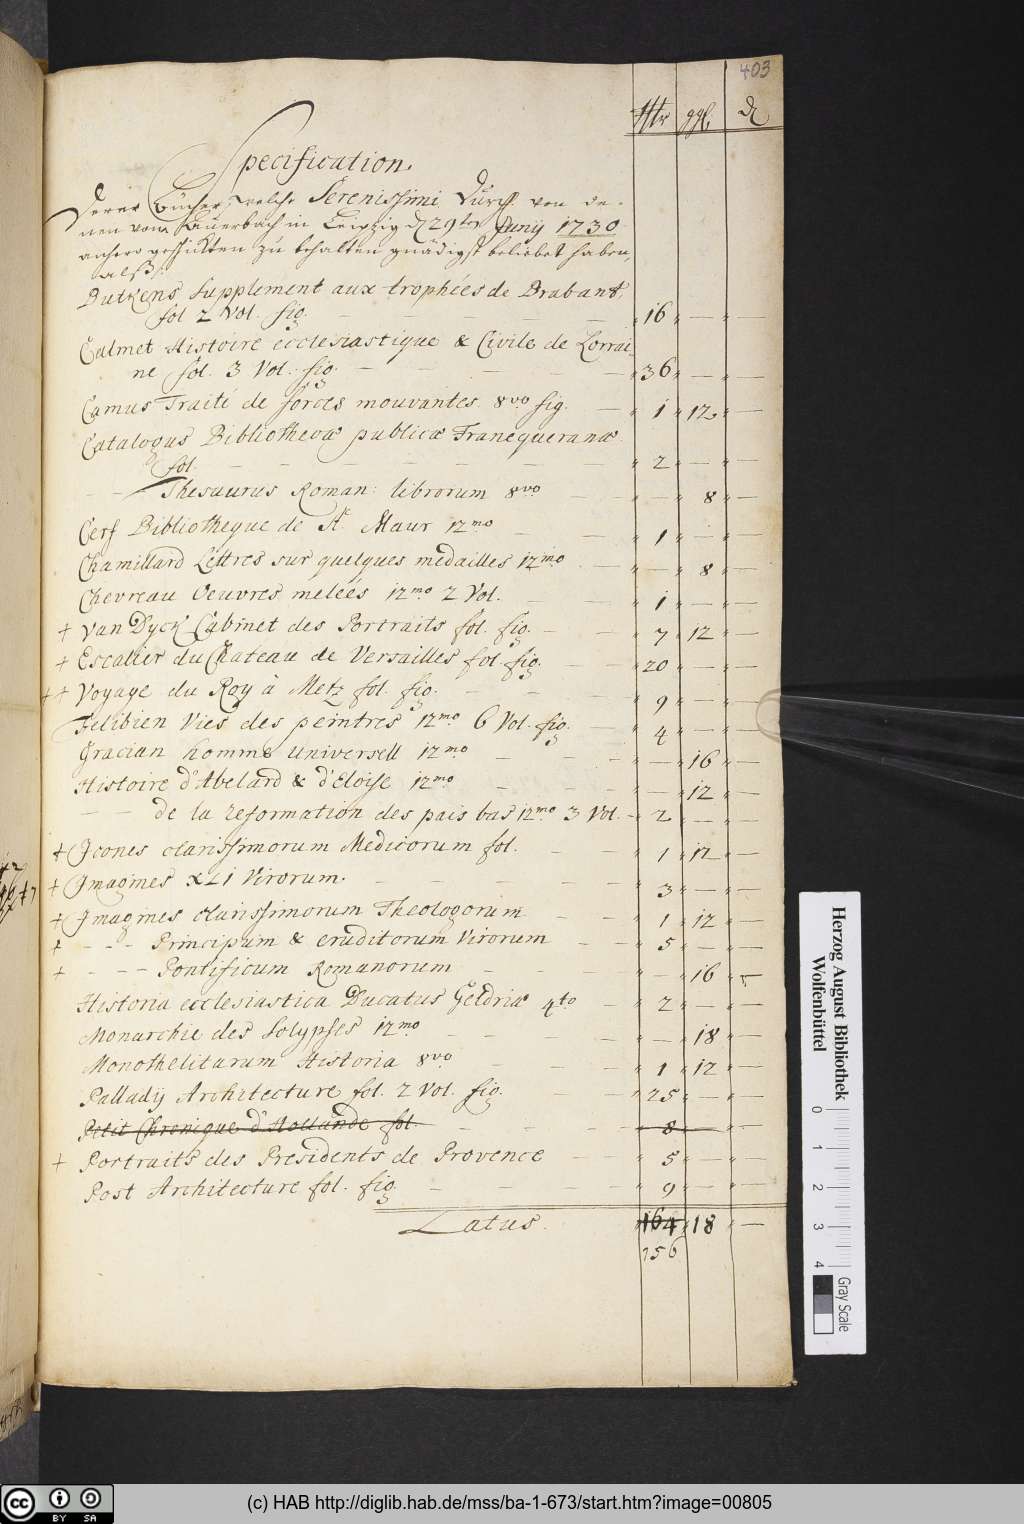 403
Thr ggl. d
Specification.
Derer Bücher, welche Serenissimi Durchl. von de-
nen vom Auerbach in Leipzig d 29ten Junij 1730
anhero geschickten zu behalten gnädigst beliebet haben,
alß:
Butkens Supplement aux trophées de Brabant,
fol 2 Vol. fig. — — — — 16 — —
Calmet Histoire ecclesiastique & Civile de Lorrai-
ne fol. 3 Vol. fig. — — — — 36 — —
Camus Traité de forces mouvantes 8vo fig. — 1 12 —
Catalogus Bibliothecæ publicæ Franequeranæ
fol. — — — — — — 2 — —
— — Thesaurus Roman: librorum 8vo — — — 8 —
Cerf Bibliotheque de St. Maur 12mo — — 1 — —
Chamillard Lettres sur quelques medailles 12mo — — 8 —
Chevreau Oeuvres melées 12mo 2 Vol. — — 1 — —
+ van Dyck Cabinet des Portraits fol. fig. — — 7 12 —
+ Escalier du Chateau de Versailles fol. fig. — — 20 — —
+ + Voyage du Roy à Metz fol. fig. — — — 9 — —
Felibien Vies des peintres 12mo 6 Vol. fig. — 4 — —
Gracian homme Universell 12mo — — — — 16 —
Histoire d'Abelard & d'Eloise 12mo — — — — 12 —
— — de la reformation des pais bas 12mo 3 Vol. — 2 — —
+ Icones clarissimorum Medicorum fol. — — 1 12 —
+ Imagines XLI Virorum. — — — — 3 — —
+ Imagines clarissimorum Theologorum — — 1 12 —
+ - - - Principum & eruditorum Virorum — — 5 — —
+ - - - Pontificum Romanorum — — — 16 —
Historia ecclesiastica Ducatus Geldriæ 4to — 2 — —
Monarchie des Solypses 12mo — — — — 18 —
Monothelitarum Historia 8vo — — — 1 12 —
Palladij Architecture fol. 2 Vol. fig. — — 25 — —
Petit Chronique d'Hollande fol. — — — 8 — —
+ Portraits des Presidents de Provence — — 5 — —
Post Architecture fol. fig. — — — — 9 — —
Latus. 164 18 —
156
Herzog August Bibliothek
Wolfenbüttel
0 1 2 3 4
Gray Scale
cc BY SA
(c) HAB http://diglib.hab.de/mss/ba-1-673/start.htm?image=00805